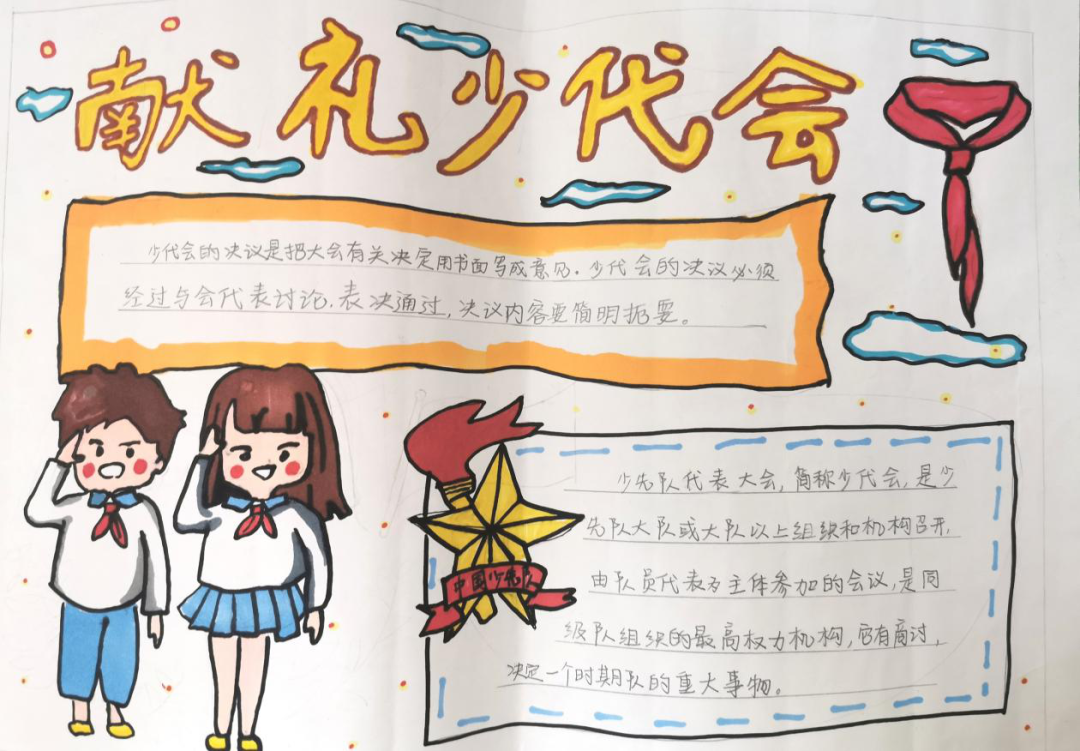 献礼少代会
少代会的决议是把大会有关决定用书面写成意见.少代会的决议必须
经过与会代表讨论.表决通过,决议内容要简明扼要。
少先队代表大会,简称少代会,是少
先队大队或大队以上组织和机构召开,
由队员代表为主体参加的会议,是同
级队组织的最高权力机构,它有商讨,
决定一个时期队的重大事物。
中国少先队